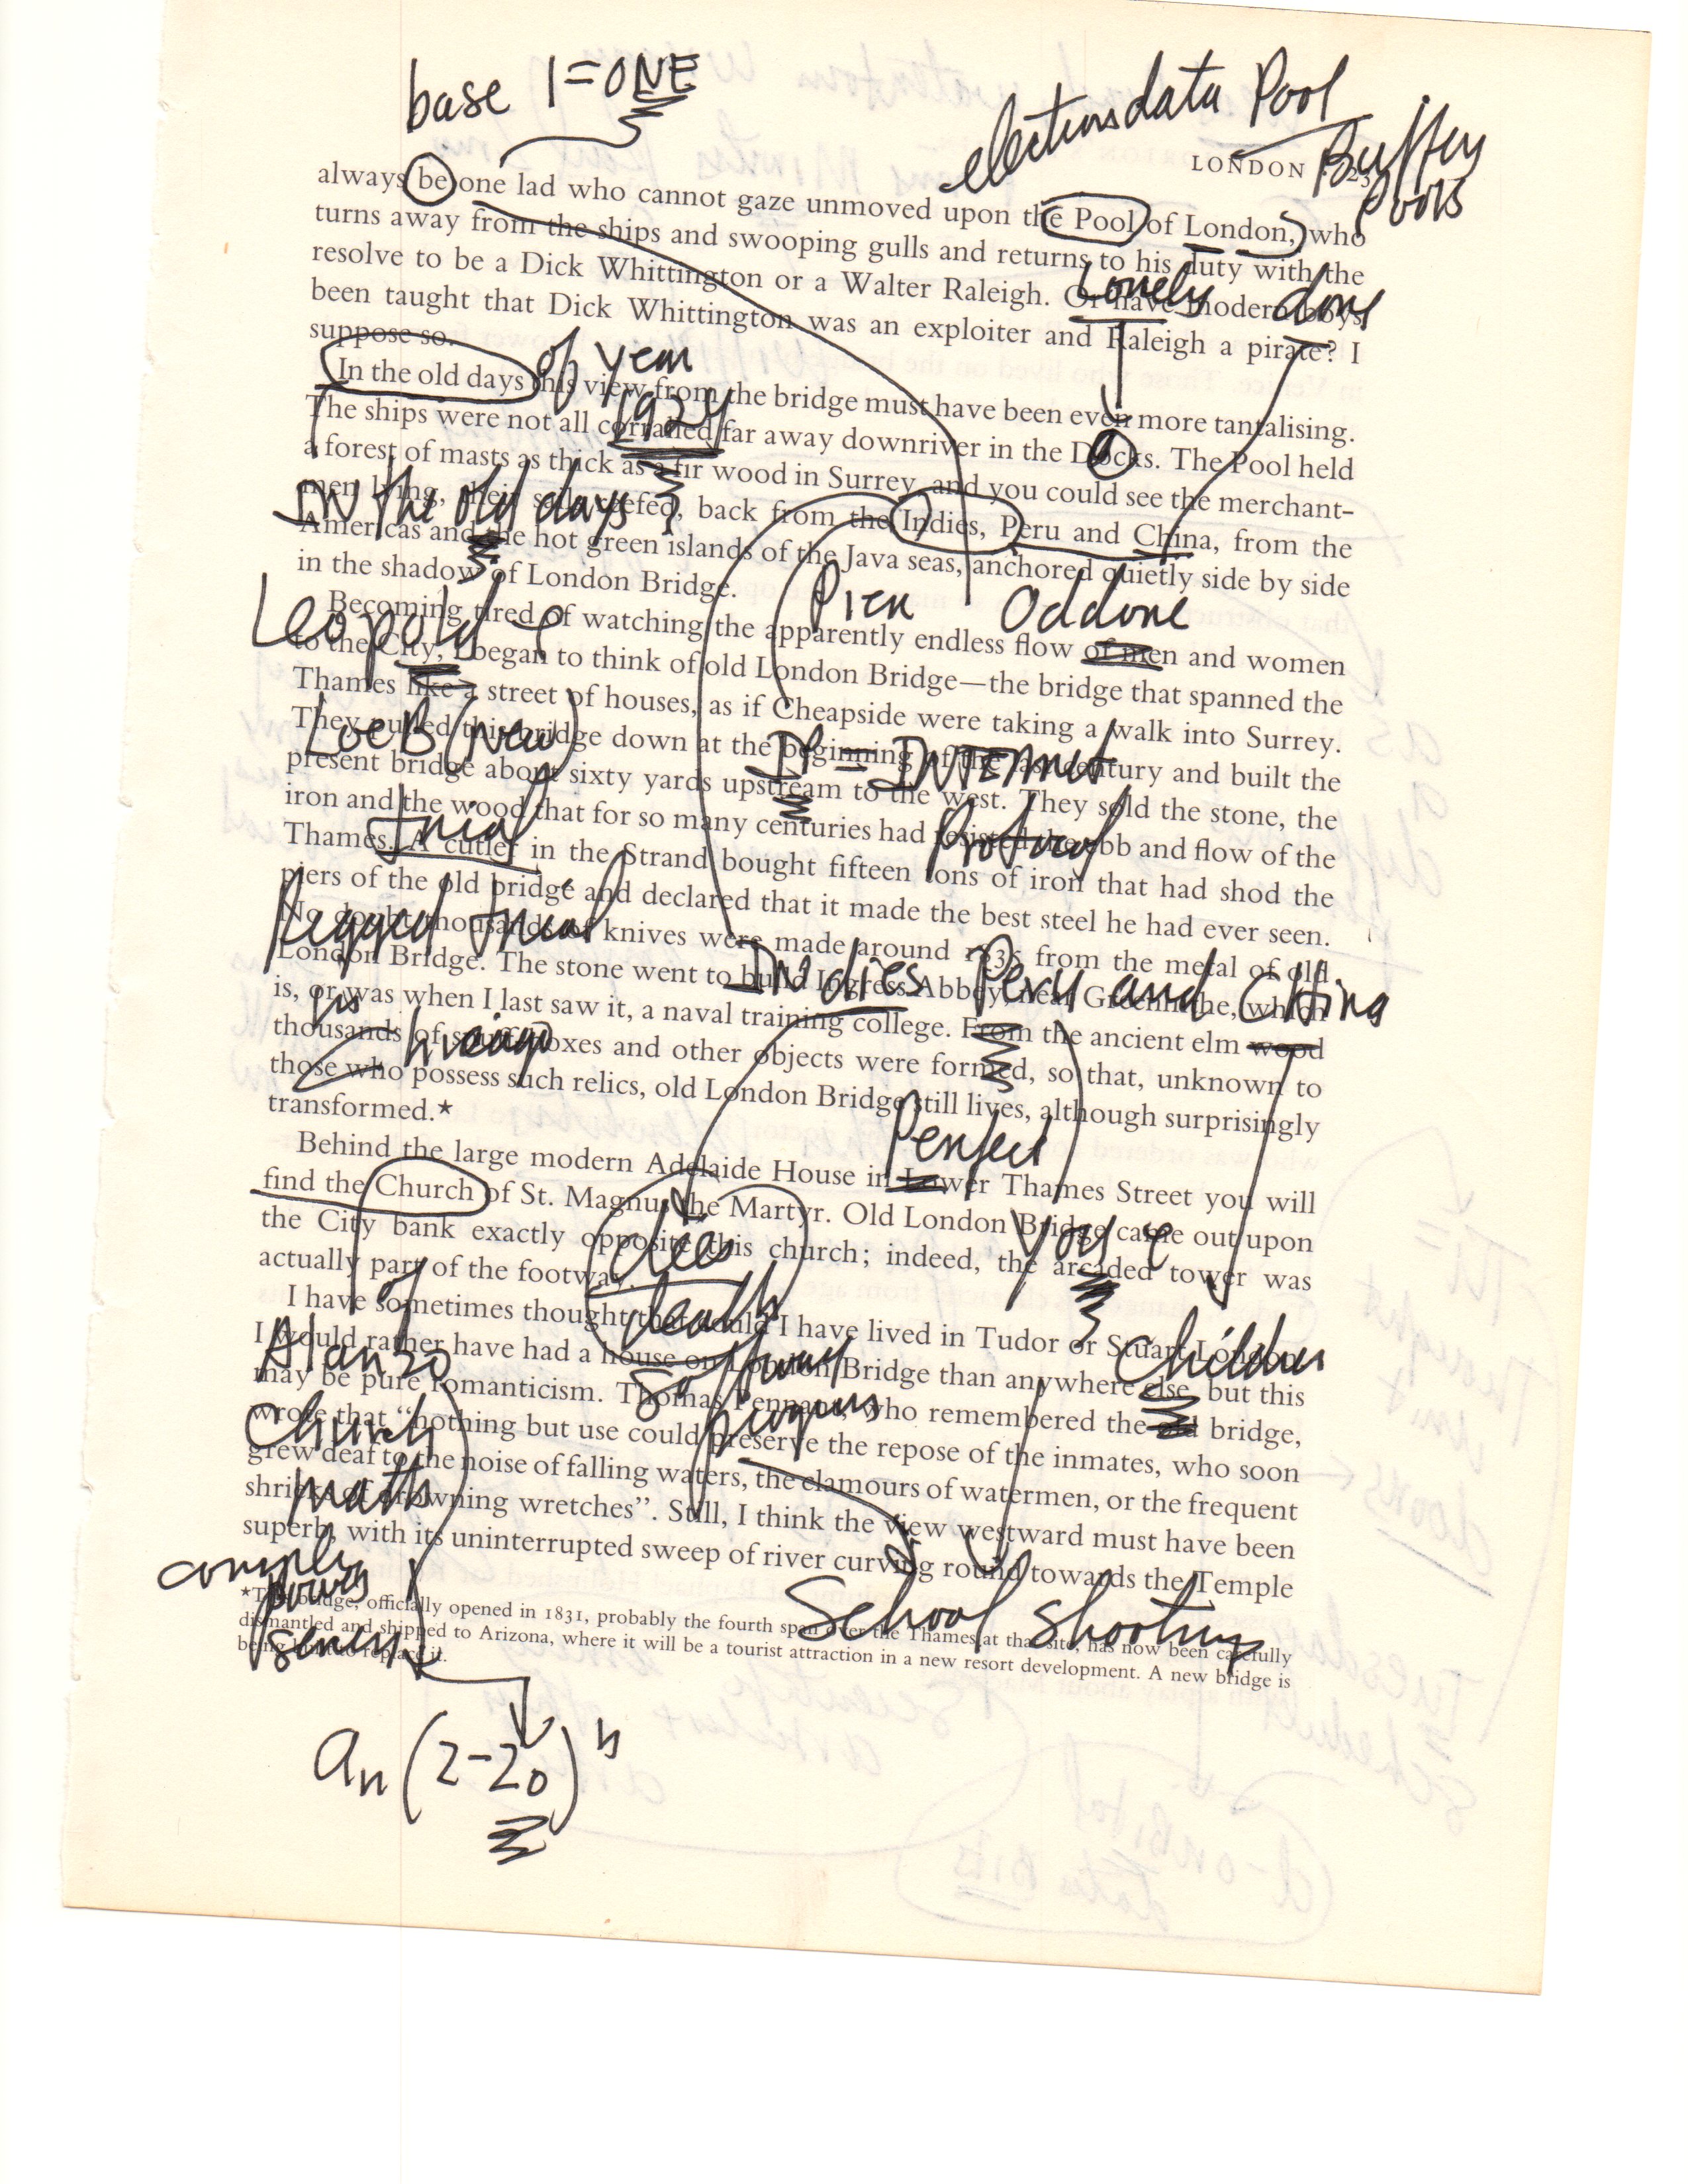 base 1=ONE
elections data Pool
Buffer
Pools
LONDON 23
always be one lad who cannot gaze unmoved upon the Pool of London, who
turns away from the ships and swooping gulls and returns to his duty with the
Lonely done
resolve to be a Dick Whittington or a Walter Raleigh. Or have modern boys
been taught that Dick Whittington was an exploiter and Raleigh a pirate? I
suppose so.
of year
1924
In the old days this view from the bridge must have been even more tantalising.
The ships were not all corralled far away downriver in the Docks. The Pool held
a forest of masts as thick as a fir wood in Surrey, and you could see the merchant-
IN the old days
men lying, their sails reefed, back from the Indies, Peru and China, from the
Americas and the hot green islands of the Java seas, anchored quietly side by side
in the shadow of London Bridge.
Leopold &
Pier Oddone
Becoming tired of watching the apparently endless flow of men and women
to the City, I began to think of old London Bridge—the bridge that spanned the
Thames like a street of houses, as if Cheapside were taking a walk into Surrey.
Loeb (New)
IP = INTERnet
They pulled this bridge down at the beginning of the last century and built the
present bridge about sixty yards upstream to the west. They sold the stone, the
iron and the wood that for so many centuries had resisted the ebb and flow of the
trial
Protocol
Thames. A cutler in the Strand bought fifteen tons of iron that had shod the
piers of the old bridge and declared that it made the best steel he had ever seen.
Rigged trial
No doubt thousands of knives were made around 1835 from the metal of old
London Bridge. The stone went to build Ingress Abbey, near Greenhithe, which
INdies Peru and CHina
is, or was when I last saw it, a naval training college. From the ancient elm wood
in
Chicago
thousands of snuff-boxes and other objects were formed, so that, unknown to
those who possess such relics, old London Bridge still lives, although surprisingly
transformed.*
Perfect
Behind the large modern Adelaide House in Lower Thames Street you will
find the Church of St. Magnus the Martyr. Old London Bridge came out upon
the City bank exactly opposite this church; indeed, the arcaded tower was
actually part of the footway.
dies
death
of
I have sometimes thought that could I have lived in Tudor or Stuart London
Alonzo
software
Children
I would rather have had a house on London Bridge than anywhere else, but this
may be pure romanticism. Thomas Pennant, who remembered the old bridge,
Church
programs
wrote that “nothing but use could preserve the repose of the inmates, who soon
grew deaf to the noise of falling waters, the clamours of watermen, or the frequent
math
shrieks of drowning wretches”. Still, I think the view westward must have been
superb, with its uninterrupted sweep of river curving round towards the Temple
complex
power
series
School shootings
*This bridge, officially opened in 1831, probably the fourth span over the Thames at that site, has now been carefully
dismantled and shipped to Arizona, where it will be a tourist attraction in a new resort development. A new bridge is
being built to replace it.
an(z-z0)n